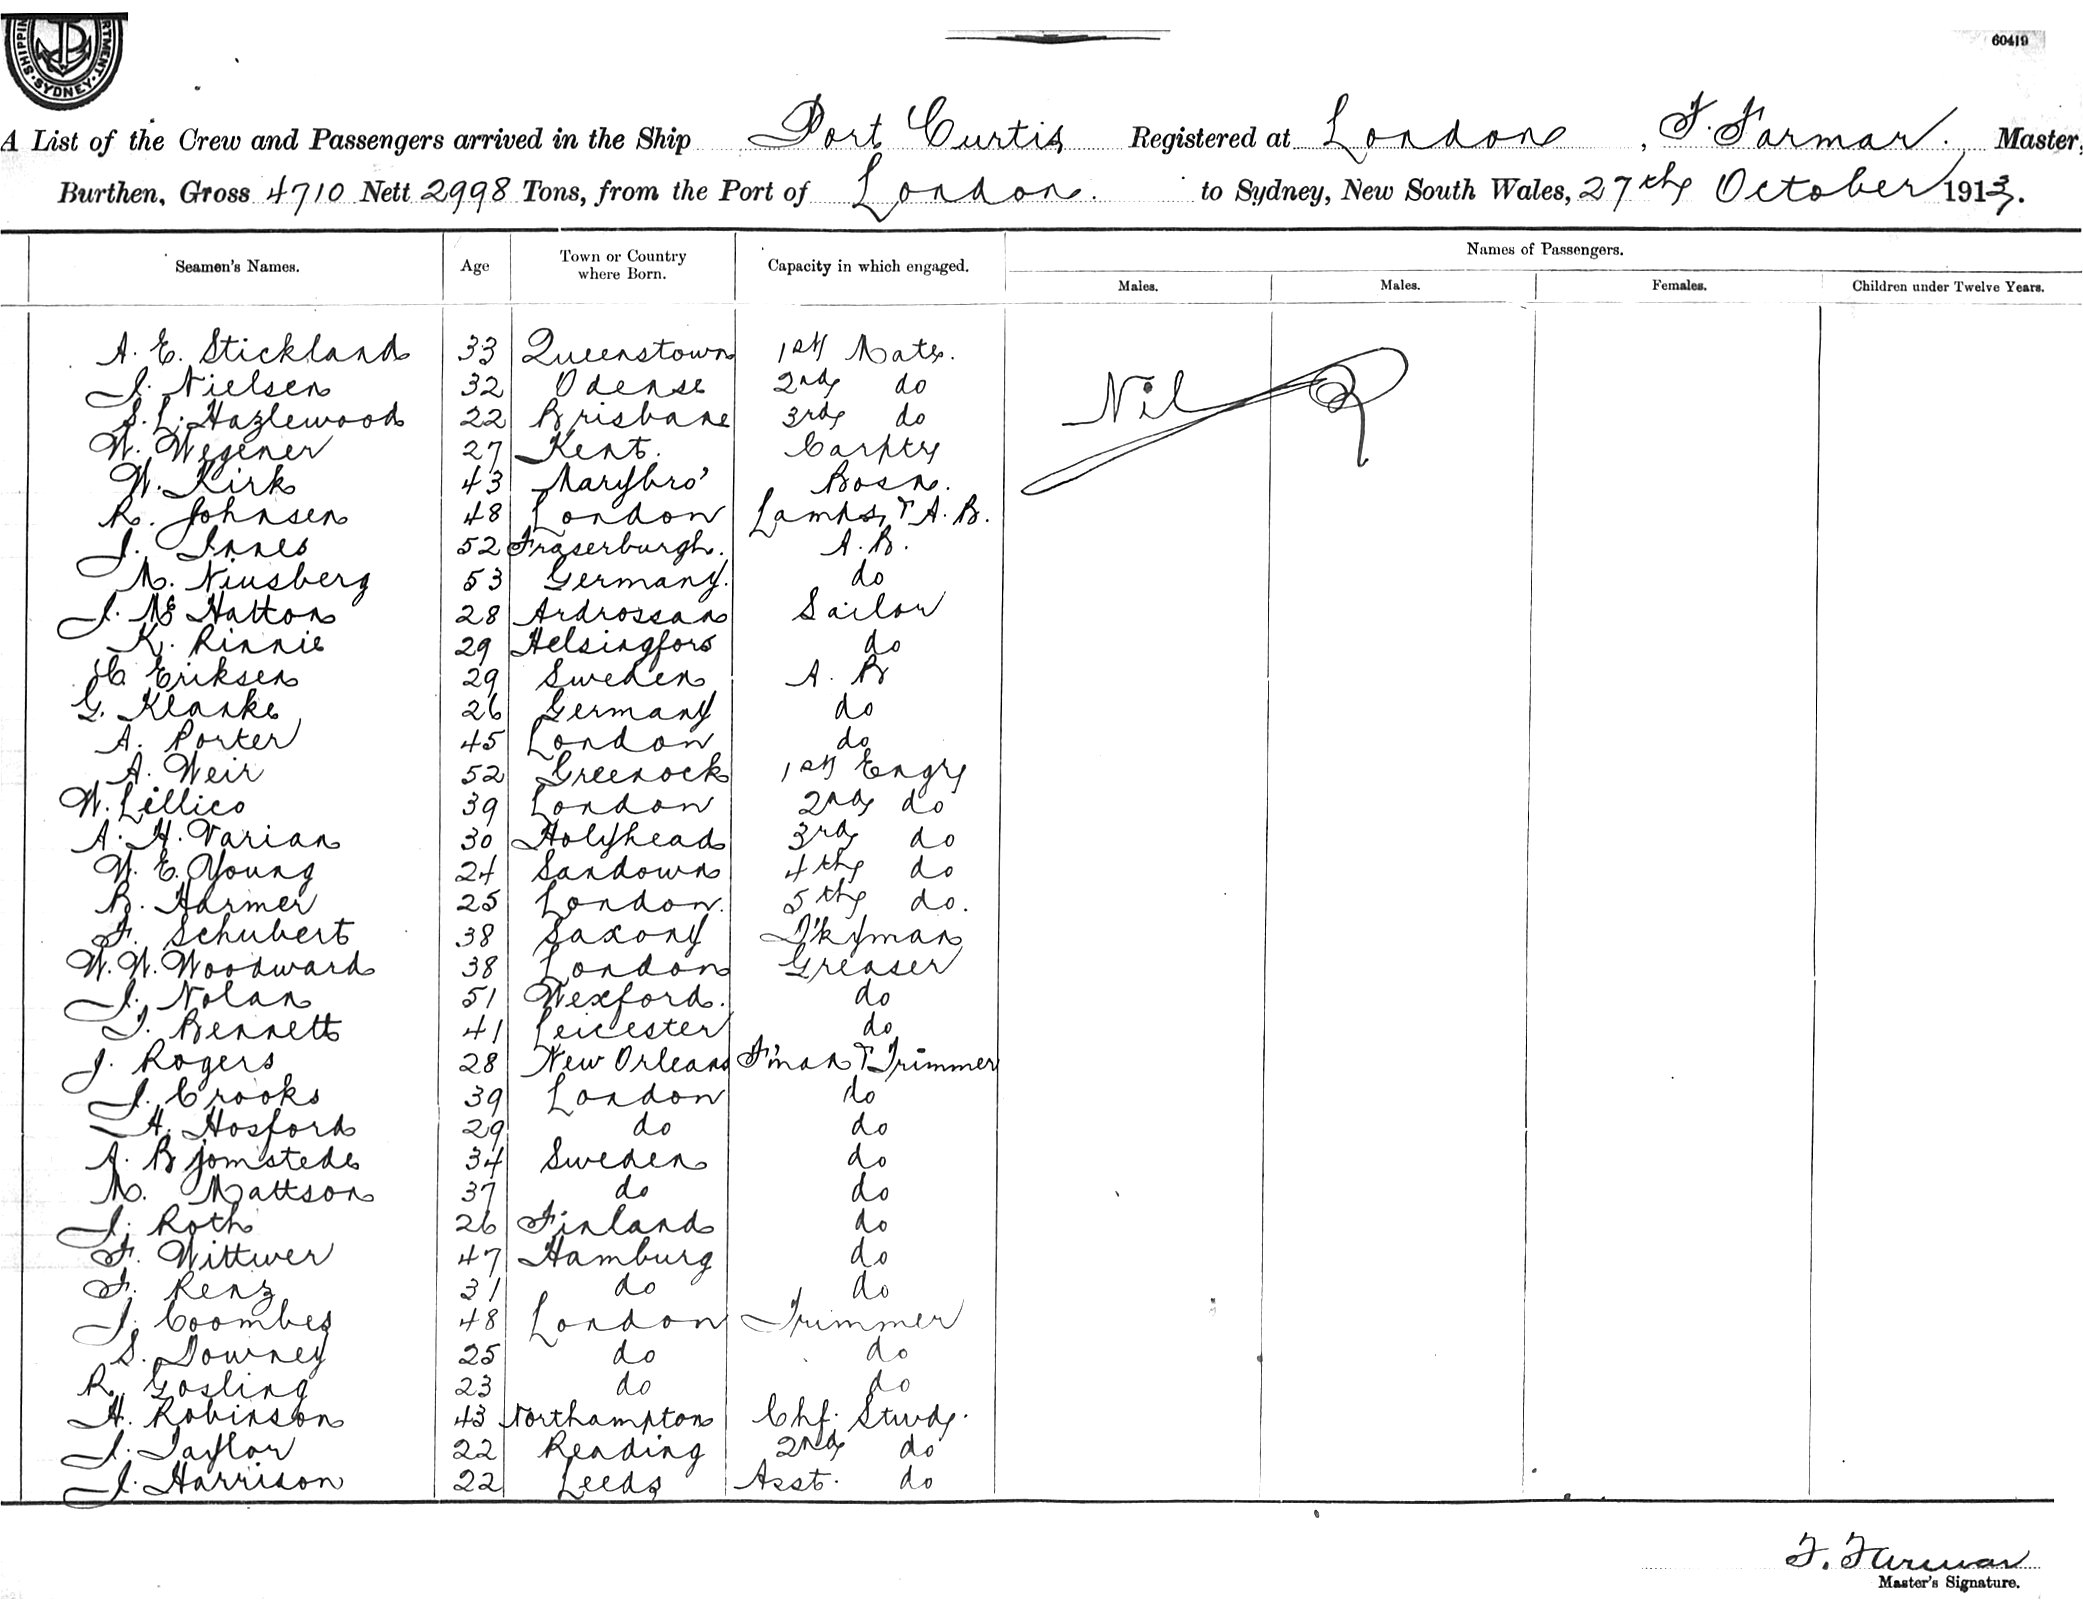 SHIPPIN RTMENT · SYDNEY ·
60419
A List of the Crew and Passengers arrived in the Ship Port Curtis Registered at London, F. Farmar. Master,
Burthen, Gross 4710 Nett 2998 Tons, from the Port of London. to Sydney, New South Wales, 27th October 1913.
Seamen's Names. Age Town or Country where Born. Capacity in which engaged. Names of Passengers.
Males. Males. Females. Children under Twelve Years.
A. E. Stickland 33 Queenstown 1st Mate.
J. Nielsen 32 Odense 2nd do Nil
S. L. Hazlewood 22 Brisbane 3rd do
W. Wegener 27 Kent. Carptr
W. Kirk 43 Marybro' Bosn.
R. Johnsen 48 London Lamps & A. B.
J. Innes 52 Fraserburgh. A. B.
M. Niusberg 53 Germany. do
J. Mc Hatton 28 Ardrossan Sailor
K. Rinnie 29 Helsingfors do
C Eriksen 29 Sweden A. B
G. Klanke 26 Germany do
A. Porter 45 London do
A. Weir 52 Greenock 1st Engr
W. Lillico 39 London 2nd do
A. H. Varian 30 Holyhead 3rd do
W. E. Young 24 Sandown 4th do
B. Harmer 25 London. 5th do.
F. Schubert 38 Saxony D'kyman
W. W. Woodward 38 London Greaser
J. Nolan 51 Wexford. do
T. Bennett 41 Leicester do
J. Rogers 28 New Orleans F'man & Trimmer
J. Crooks 39 London do
H. Hosford 29 do do
A. Bjornstede 34 Sweden do
M. Mattson 37 do do
J. Roth 26 Finland do
F. Wittwer 47 Hamburg do
F. Renz 31 do do
J. Coombes 48 London Trimmer
S. Downey 25 do do
R. Gosling 23 do do
H. Robinson 43 Northampton Chf. Stwd.
J. Taylor 22 Reading 2nd do
J. Harrison 22 Leeds Asst. do
F. Farmar
Master's Signature.